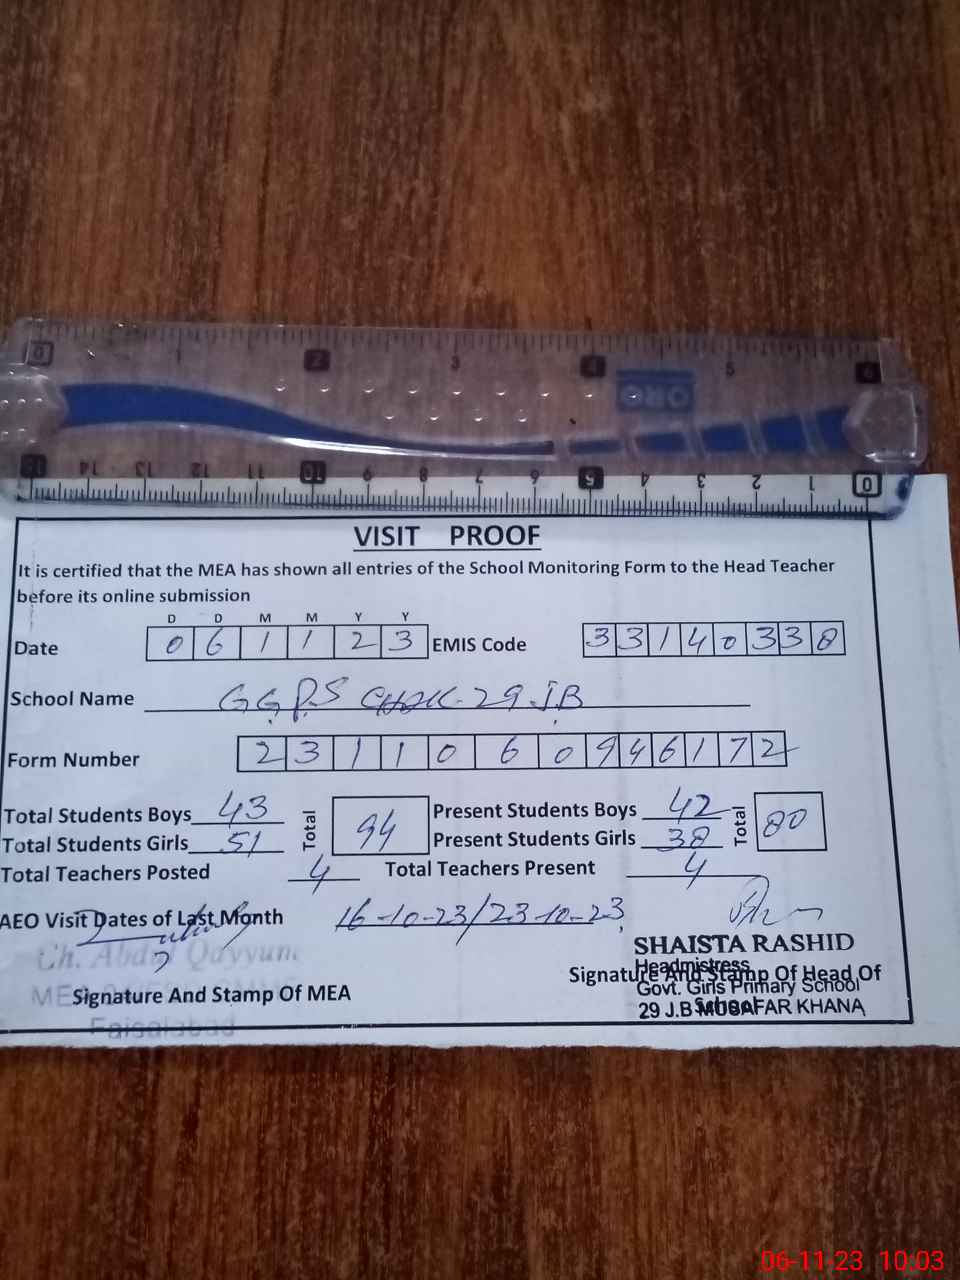 0 1 2 3 4 5 6
ORO
15 14 13 12 11 10 9 8 7 6 5 4 3 2 1 0
VISIT PROOF
It is certified that the MEA has shown all entries of the School Monitoring Form to the Head Teacher
before its online submission
D D M M Y Y
Date 0 6 1 1 2 3 EMIS Code 3 3 1 4 0 3 3 8
School Name GGPS CHOK 29 J.B
Form Number 2 3 1 1 0 6 0 9 4 6 1 7 2
Total Students Boys 43 Total 94 Present Students Boys 42 Total 80
Total Students Girls 51 Present Students Girls 38
Total Teachers Posted 4 Total Teachers Present 4
AEO Visit Dates of Last Month 16-10-23/23-10-23
Ch. Abdul Qayyum
MEA
Faisalabad
Signature And Stamp Of MEA
SHAISTA RASHID
Headmistress
Signature And Stamp Of Head Of
Govt. Girls Primary School
School
29 J.B MUSAFAR KHANA
06-11-23 10:03